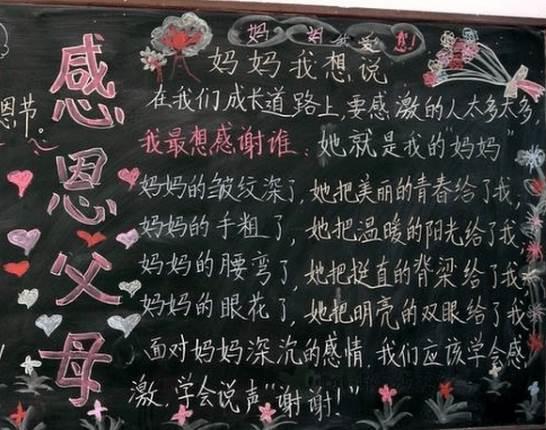 恩节。
感恩父母
妈妈我爱你!
妈妈我想说
在我们成长道路上,要感激的人太多太多
我最想感谢谁:她就是我的"妈妈"
妈妈的皱纹深了,她把美丽的青春给了我,
妈妈的手粗了,她把温暖的阳光给了我,
妈妈的腰弯了,她把挺直的脊梁给了我,
妈妈的眼花了,她把明亮的双眼给了我
面对妈妈深沉的感情,我们应该学会感
激,学会说声"谢谢!"